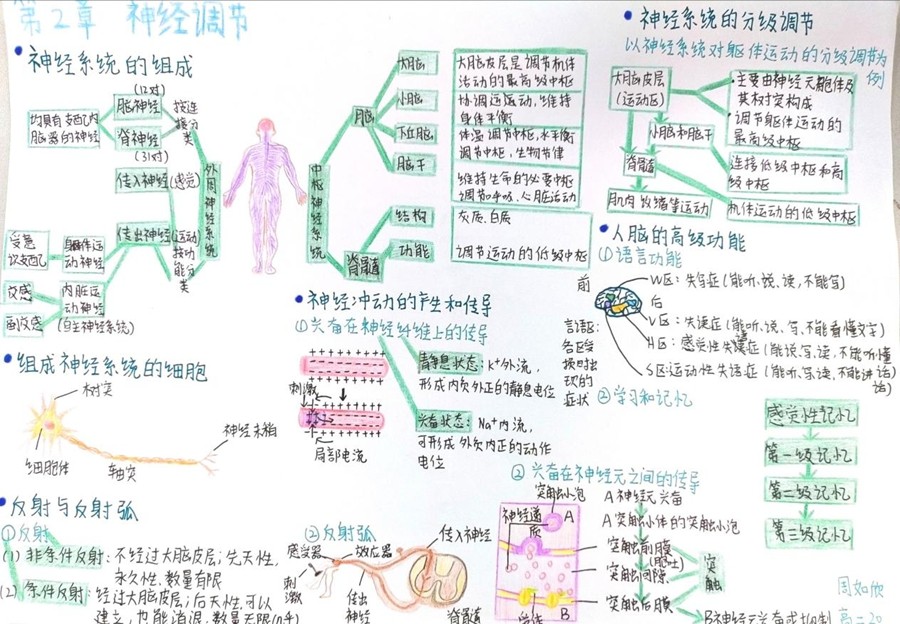 第2章 神经调节
神经系统的组成
(12对)
脑神经
脊神经
(31对)
按连接分类
均具有支配内脏器的神经
传入神经(感觉)
传出神经(运动)
按功能分类
外周神经系统
受意识支配
躯体运动神经
交感
副交感
内脏运动神经
(自主神经系统)
中枢神经系统
脑
大脑
大脑皮层是调节机体活动的最高级中枢
小脑
协调运动,维持身体平衡
下丘脑
体温调节中枢,水平衡调节中枢,生物节律
脑干
维持生命的必要中枢
调节呼吸、心脏活动
脊髓
结构
灰质、白质
功能
调节运动的低级中枢
神经系统的分级调节
以神经系统对躯体运动的分级调节为例
大脑皮层
(运动区)
主要由神经元胞体及其树突构成
调节躯体运动的最高级中枢
小脑和脑干
连接低级中枢和高级中枢
脊髓
机体运动的低级中枢
肌肉收缩等运动
人脑的高级功能
①语言功能
前
后
言语区:各区受损时出现的症状
W区:失写症(能听、说、读,不能写)
V区:失读症(能听、说、写,不能看懂文字)
H区:感觉性失语症(能说、写、读,不能听懂话)
S区运动性失语症(能听、写、读,不能讲话)
②学习和记忆
感觉性记忆
第一级记忆
第二级记忆
第三级记忆
组成神经系统的细胞
树突
细胞体
轴突
神经末梢
神经冲动的产生和传导
①兴奋在神经纤维上的传导
刺激
局部电流
静息状态:K+外流,
形成内负外正的静息电位
兴奋状态:Na+内流,
可形成外负内正的动作
电位
②兴奋在神经元之间的传导
突触小泡
神经递质
A
B
A神经元兴奋
A突触小体的突触小泡
突触前膜
(胞吐)
突触间隙
突触后膜
突触
反射与反射弧
①反射
(1)非条件反射:不经过大脑皮层;先天性,
永久性,数量有限
(2)条件反射:经过大脑皮层;后天性,可以
建立,也能消退,数量无限
②反射弧
感受器
效应器
传入神经
刺激
传出神经
脊髓
高二20